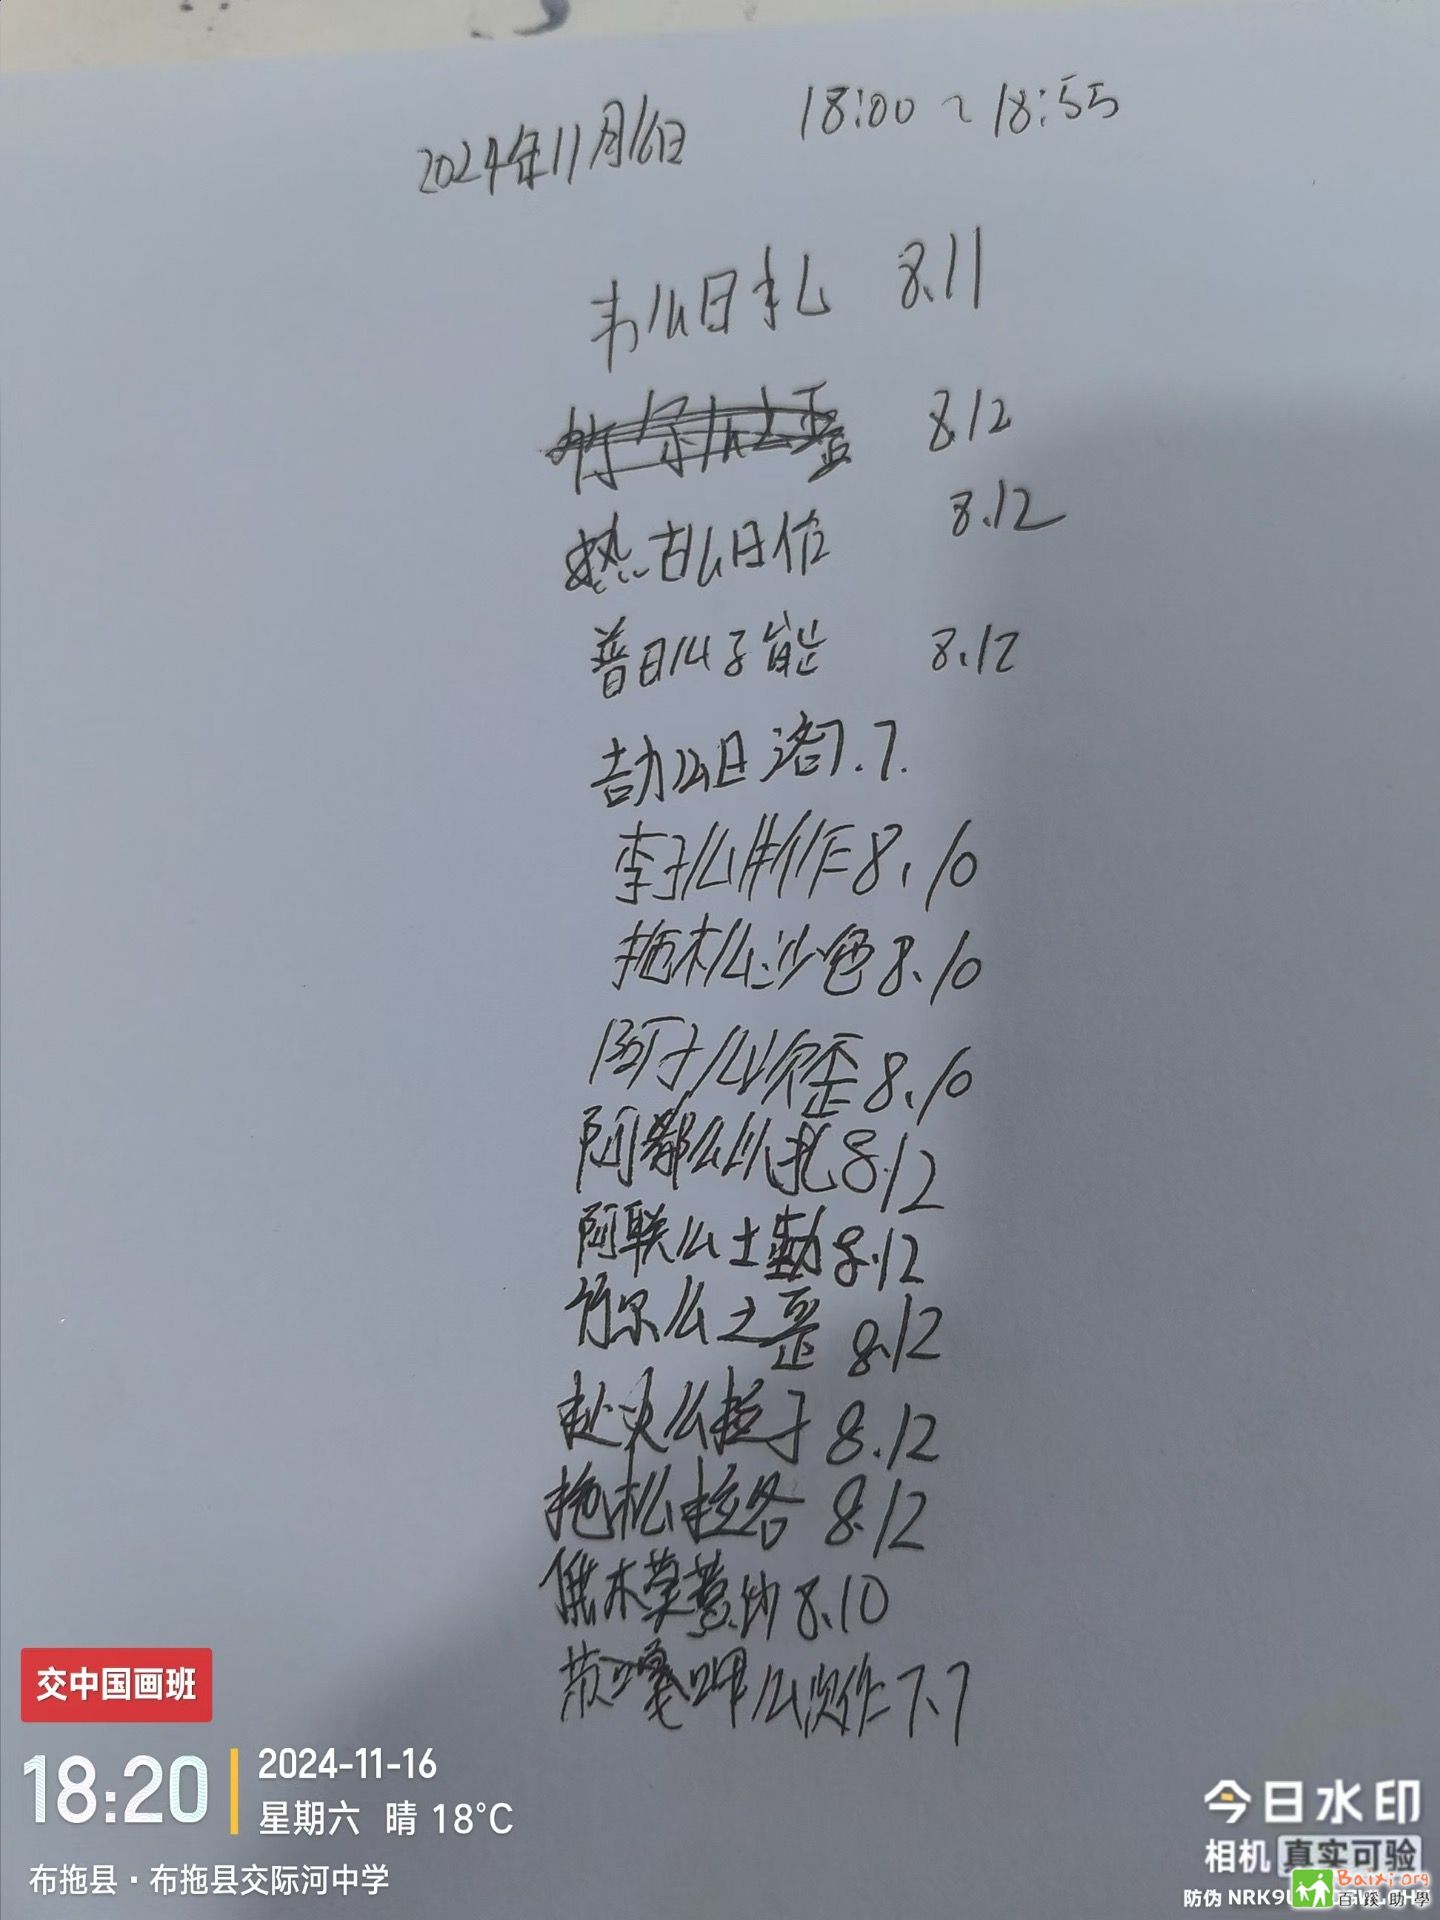 2024年11月16日 18:00~18:55
韦么日扎 8.11
8.12
热古么日作 8.12
普日么子能 8.12
吉力么日洛7.7.
李子么制作8.10
拖木么沙色8.10
阿于么次歪8.10
阿都么以扎8.12
阿联么土勤8.12
竹尔么之歪 8.12
么拉于 8.12
拖木么拉各 8.12
俄木莫薏炒8.10
呷么次作7.7
交中国画班
18:20
2024-11-16
星期六 晴 18°C
布拖县·布拖县交际河中学
今日水印
相机 真实可验
防伪 NRK9U
Baixi.org
百蹊助學